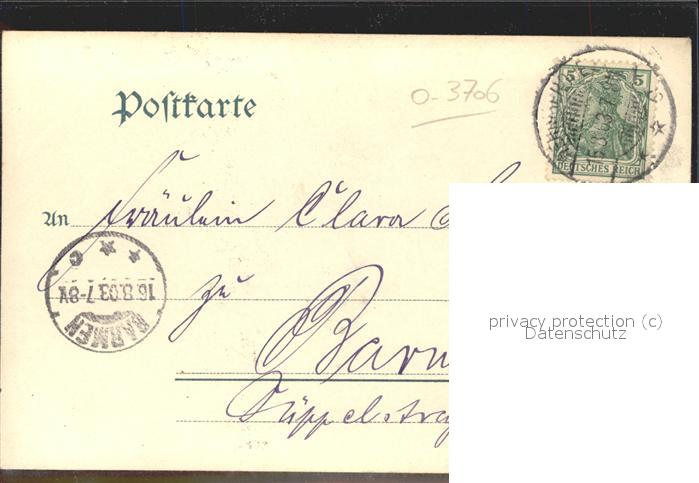 Postkarte
0-3706
5 5
DEUTSCHES REICH
An Fräulein Clara
zu
Barm
Düppelstraß
BARMEN
16.8.03.7-8V.
c
privacy protection (c)
Datenschutz